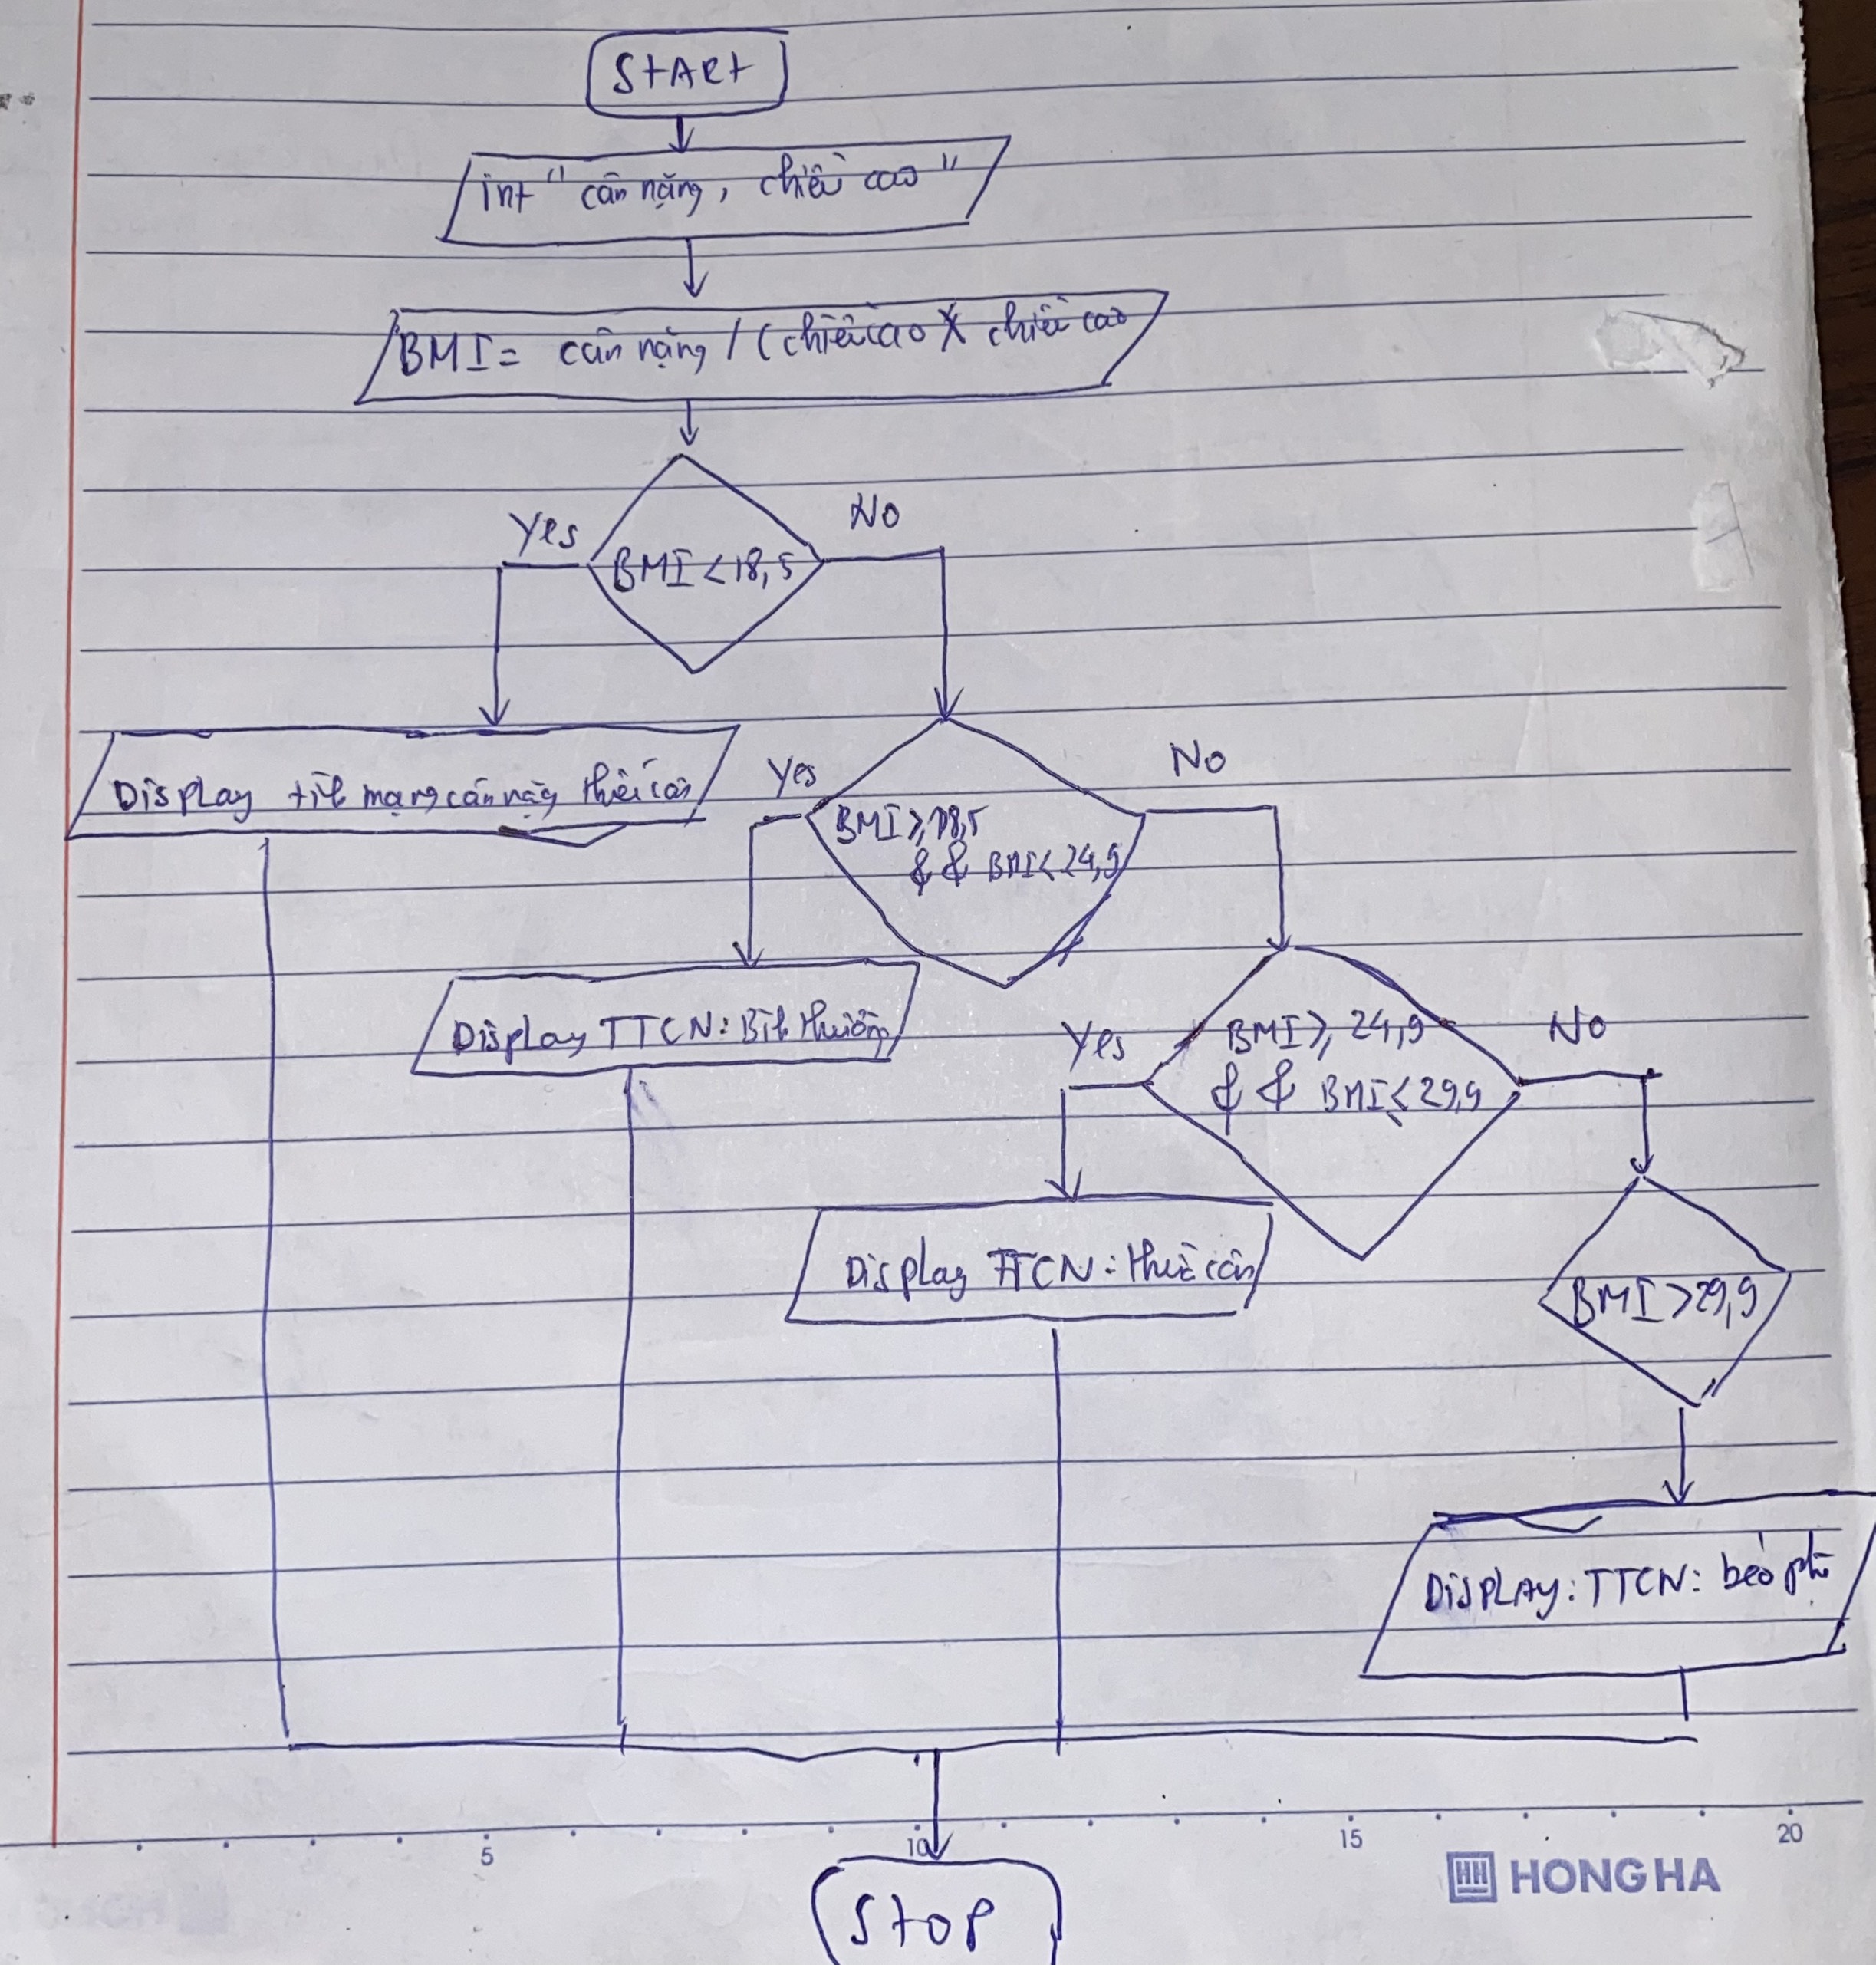 START
int " cân nặng, chiều cao "
BMI = cân nặng / ( chiều cao X chiều cao
Yes
No
BMI < 18,5
Display tình mạng cân nặng thiếu cân
Yes
No
BMI ≥ 18,5
& & BMI < 24,9
Display TTCN: Bình thường
Yes
No
BMI ≥ 24,9
& & BMI ≤ 29,9
Display TTCN: thừa cân
BMI > 29,9
DISPLAY: TTCN: béo phì
5
10
15
20
HH HONG HA
STOP